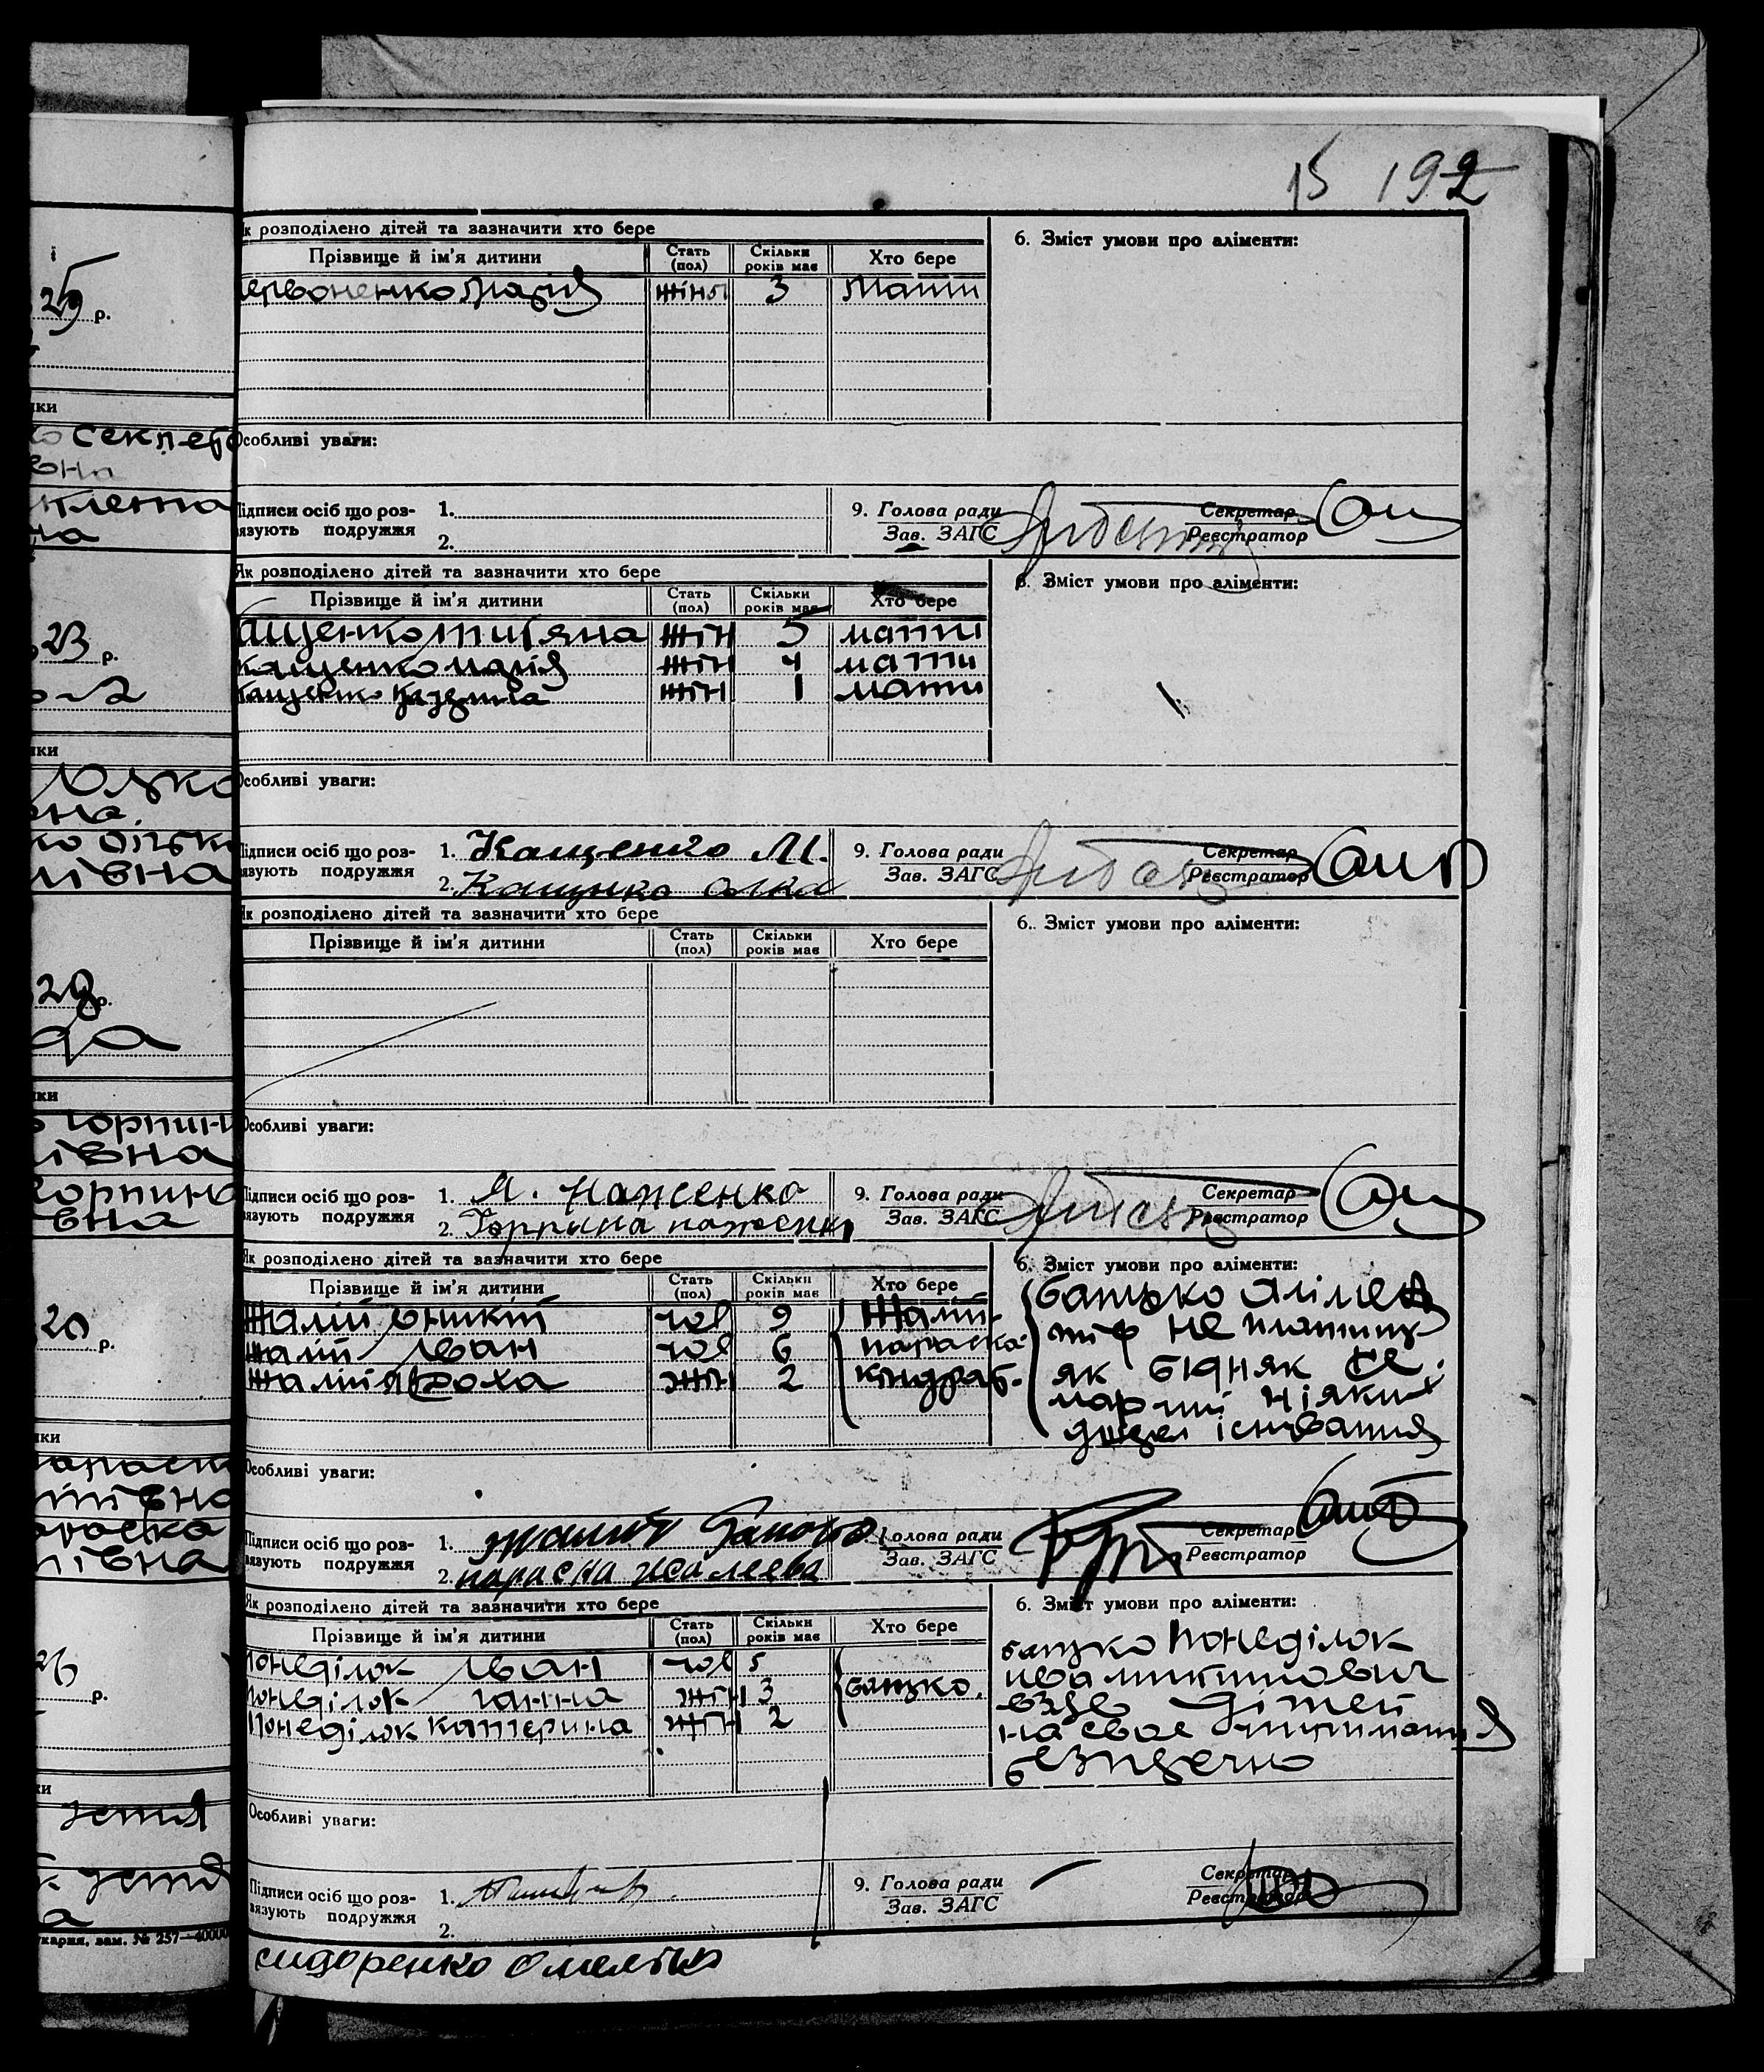 15 192
як розподілено дітей та зазначити хто бере
6. Зміст умови про аліменти:
Прізвище й ім'я дитини Стать (пол) Скільки років має Хто бере
ервоненко Марія жіноч 3 Мати
29 р.
ки
секлета
Особливі уваги:
вна
Підписи осіб що роз-
вязують подружжя
1.
2.
9. Голова ради
Зав. ЗАГС
Секретар
Реєстратор
Як розподілено дітей та зазначити хто бере
6. Зміст умови про аліменти:
Прізвище й ім'я дитини Стать (пол) Скільки років має Хто бере
ащенко Титяна жін 5 мати
Кащенко Марія жін 4 мати
Кащенко жін 1 мати
23 р.
ки
Особливі уваги:
вна
івна
Підписи осіб що роз-
вязують подружжя
1. Кащенко М.
2. Кащенко олка
9. Голова ради
Зав. ЗАГС
Секретар
Реєстратор
Як розподілено дітей та зазначити хто бере
6. Зміст умови про аліменти:
Прізвище й ім'я дитини Стать (пол) Скільки років має Хто бере
28 р.
да
ки
Горпин
Особливі уваги:
івна
Горпина
вна
Підписи осіб що роз-
вязують подружжя
1. Я. наженко
2. Горпина наженко
9. Голова ради
Зав. ЗАГС
Секретар
Реєстратор
Як розподілено дітей та зазначити хто бере
6. Зміст умови про аліменти:
Прізвище й ім'я дитини Стать (пол) Скільки років має Хто бере
Жалій Оникій чол 9 Жалій
Жалій Іван чол 6 параска
Жалій Явдоха жін 2 Кіндрат.
батько алімен
тів не платить
як бідняк
ніяких
існування
20 р.
ки
Особливі уваги:
параск
івна
параска
івна
Підписи осіб що роз-
вязують подружжя
1. жалій
2. параска жалеева
Голова ради
Зав. ЗАГС
Секретар
Реєстратор
Як розподілено дітей та зазначити хто бере
6. Зміст умови про аліменти:
Прізвище й ім'я дитини Стать (пол) Скільки років має Хто бере
Понеділок Іван чол 5
Понеділок ганна жін 3 батько.
Понеділок катерина жін 2
батько Понеділок
ива микитович
взяв дітей
на своє утримання
безпечно
26 р.
ки
Особливі уваги:
устя
Підписи осіб що роз-
вязують подружжя
1.
2.
9. Голова ради
Зав. ЗАГС
Секретар
Реєстратор
карня, зам. № 257—40000
сидоренко Омелько